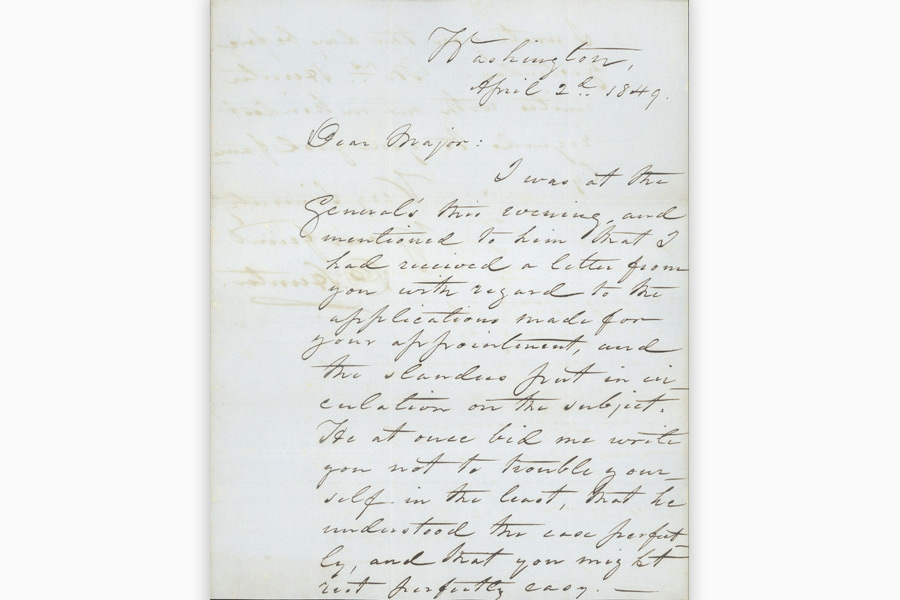 Washington,
April 2d. 1849.
Dear Major:
I was at the
General's this evening, and
mentioned to him that I
had received a letter from
you with regard to the
applications made for
your appointment, and
the slanders put in cir
culation on the subject.
He at once bid me write
you not to trouble your
self in the least, that he
understood the case perfect
ly, and that you might
rest perfectly easy. —